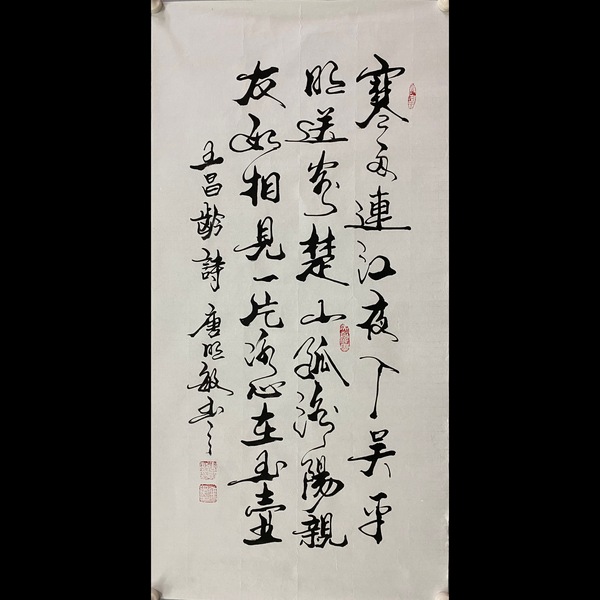 寒雨連江夜入吴平
明送客楚山孤洛陽親
友如相見一片冰心在玉壺
王昌齡詩 唐明敏书